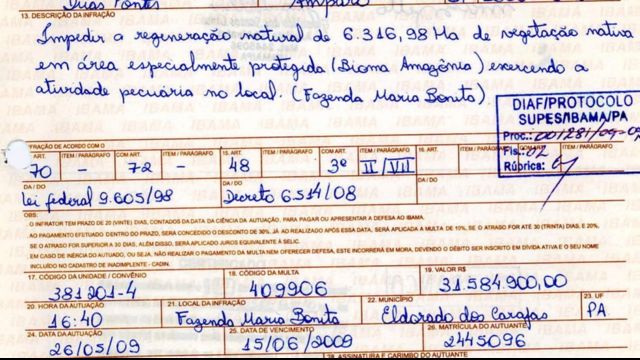 Duas Pontes Amparo
13. DESCRIÇÃO DA INFRAÇÃO
Impedir a regeneração natural de 6.316,98 Ha de vegetação nativa
em área especialmente protegida (Bioma Amazônia) exercendo a
atividade pecuária no local. (Fazenda Maria Bonita).
DIAF/PROTOCOLO
SUPES/IBAMA/PA
Proc.: 001281/09-02
Fls.: 02
Rúbrica:
INFRAÇÃO DE ACORDO COM O
ART. ITEM / PARÁGRAFO COM O ART. ITEM / PARÁGRAFO 15. ART. ITEM / PARÁGRAFO COM ART. ITEM / PARÁGRAFO
70 - 72 - 48 3º II/VII
DA / DO DA / DO DA / DO
Lei federal 9.605/98 Decreto 6.514/08
OBS:
O INFRATOR TEM PRAZO DE 20 (VINTE) DIAS, CONTADOS DA DATA DA CIÊNCIA DA AUTUAÇÃO, PARA PAGAR OU APRESENTAR A DEFESA AO IBAMA.
AO PAGAMENTO EFETUADO DENTRO DO PRAZO, SERÁ CONCEDIDO O DESCONTO DE 30%. JÁ AO REALIZADO APÓS ESSA DATA, SERÁ APLICADA A MULTA DE 10%, SE O ATRASO FOR ATÉ 30 (TRINTA) DIAS, E 20%,
SE O ATRASO FOR SUPERIOR A 30 DIAS. ALÉM DISSO, SERÁ APLICADO JUROS EQUIVALENTE À SELIC.
EM CASO DE INÉRCIA DO AUTUADO, OU SEJA, NÃO REALIZAR O PAGAMENTO OU NEM OFERECER DEFESA, ESTE INCORRERÁ EM MORA, DEVENDO O DÉBITO SER INSCRITO EM DÍVIDA ATIVA E O SEU NOME
INCLUÍDO NO CADASTRO DE INADIMPLENTE - CADIN.
17. CÓDIGO DA UNIDADE / CONVÊNIO 18. CÓDIGO DA MULTA 19. VALOR R$
381201-4 409906 31.584.900,00
20. HORA DA AUTUAÇÃO 21. LOCAL DA INFRAÇÃO 22. MUNICÍPIO 23. UF
16:40 Fazenda Maria Bonita Eldorado dos Carajas PA
24. DATA DA AUTUAÇÃO 25. DATA DE VENCIMENTO 26. MATRÍCULA DO AUTUANTE
26/05/09 15/06/2009 2445096
28. ASSINATURA E CARIMBO DO AUTUANTE